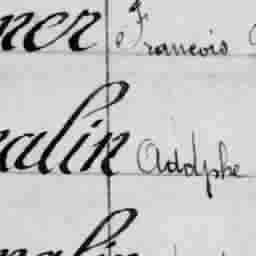 ner François
alin Adolphe
alin